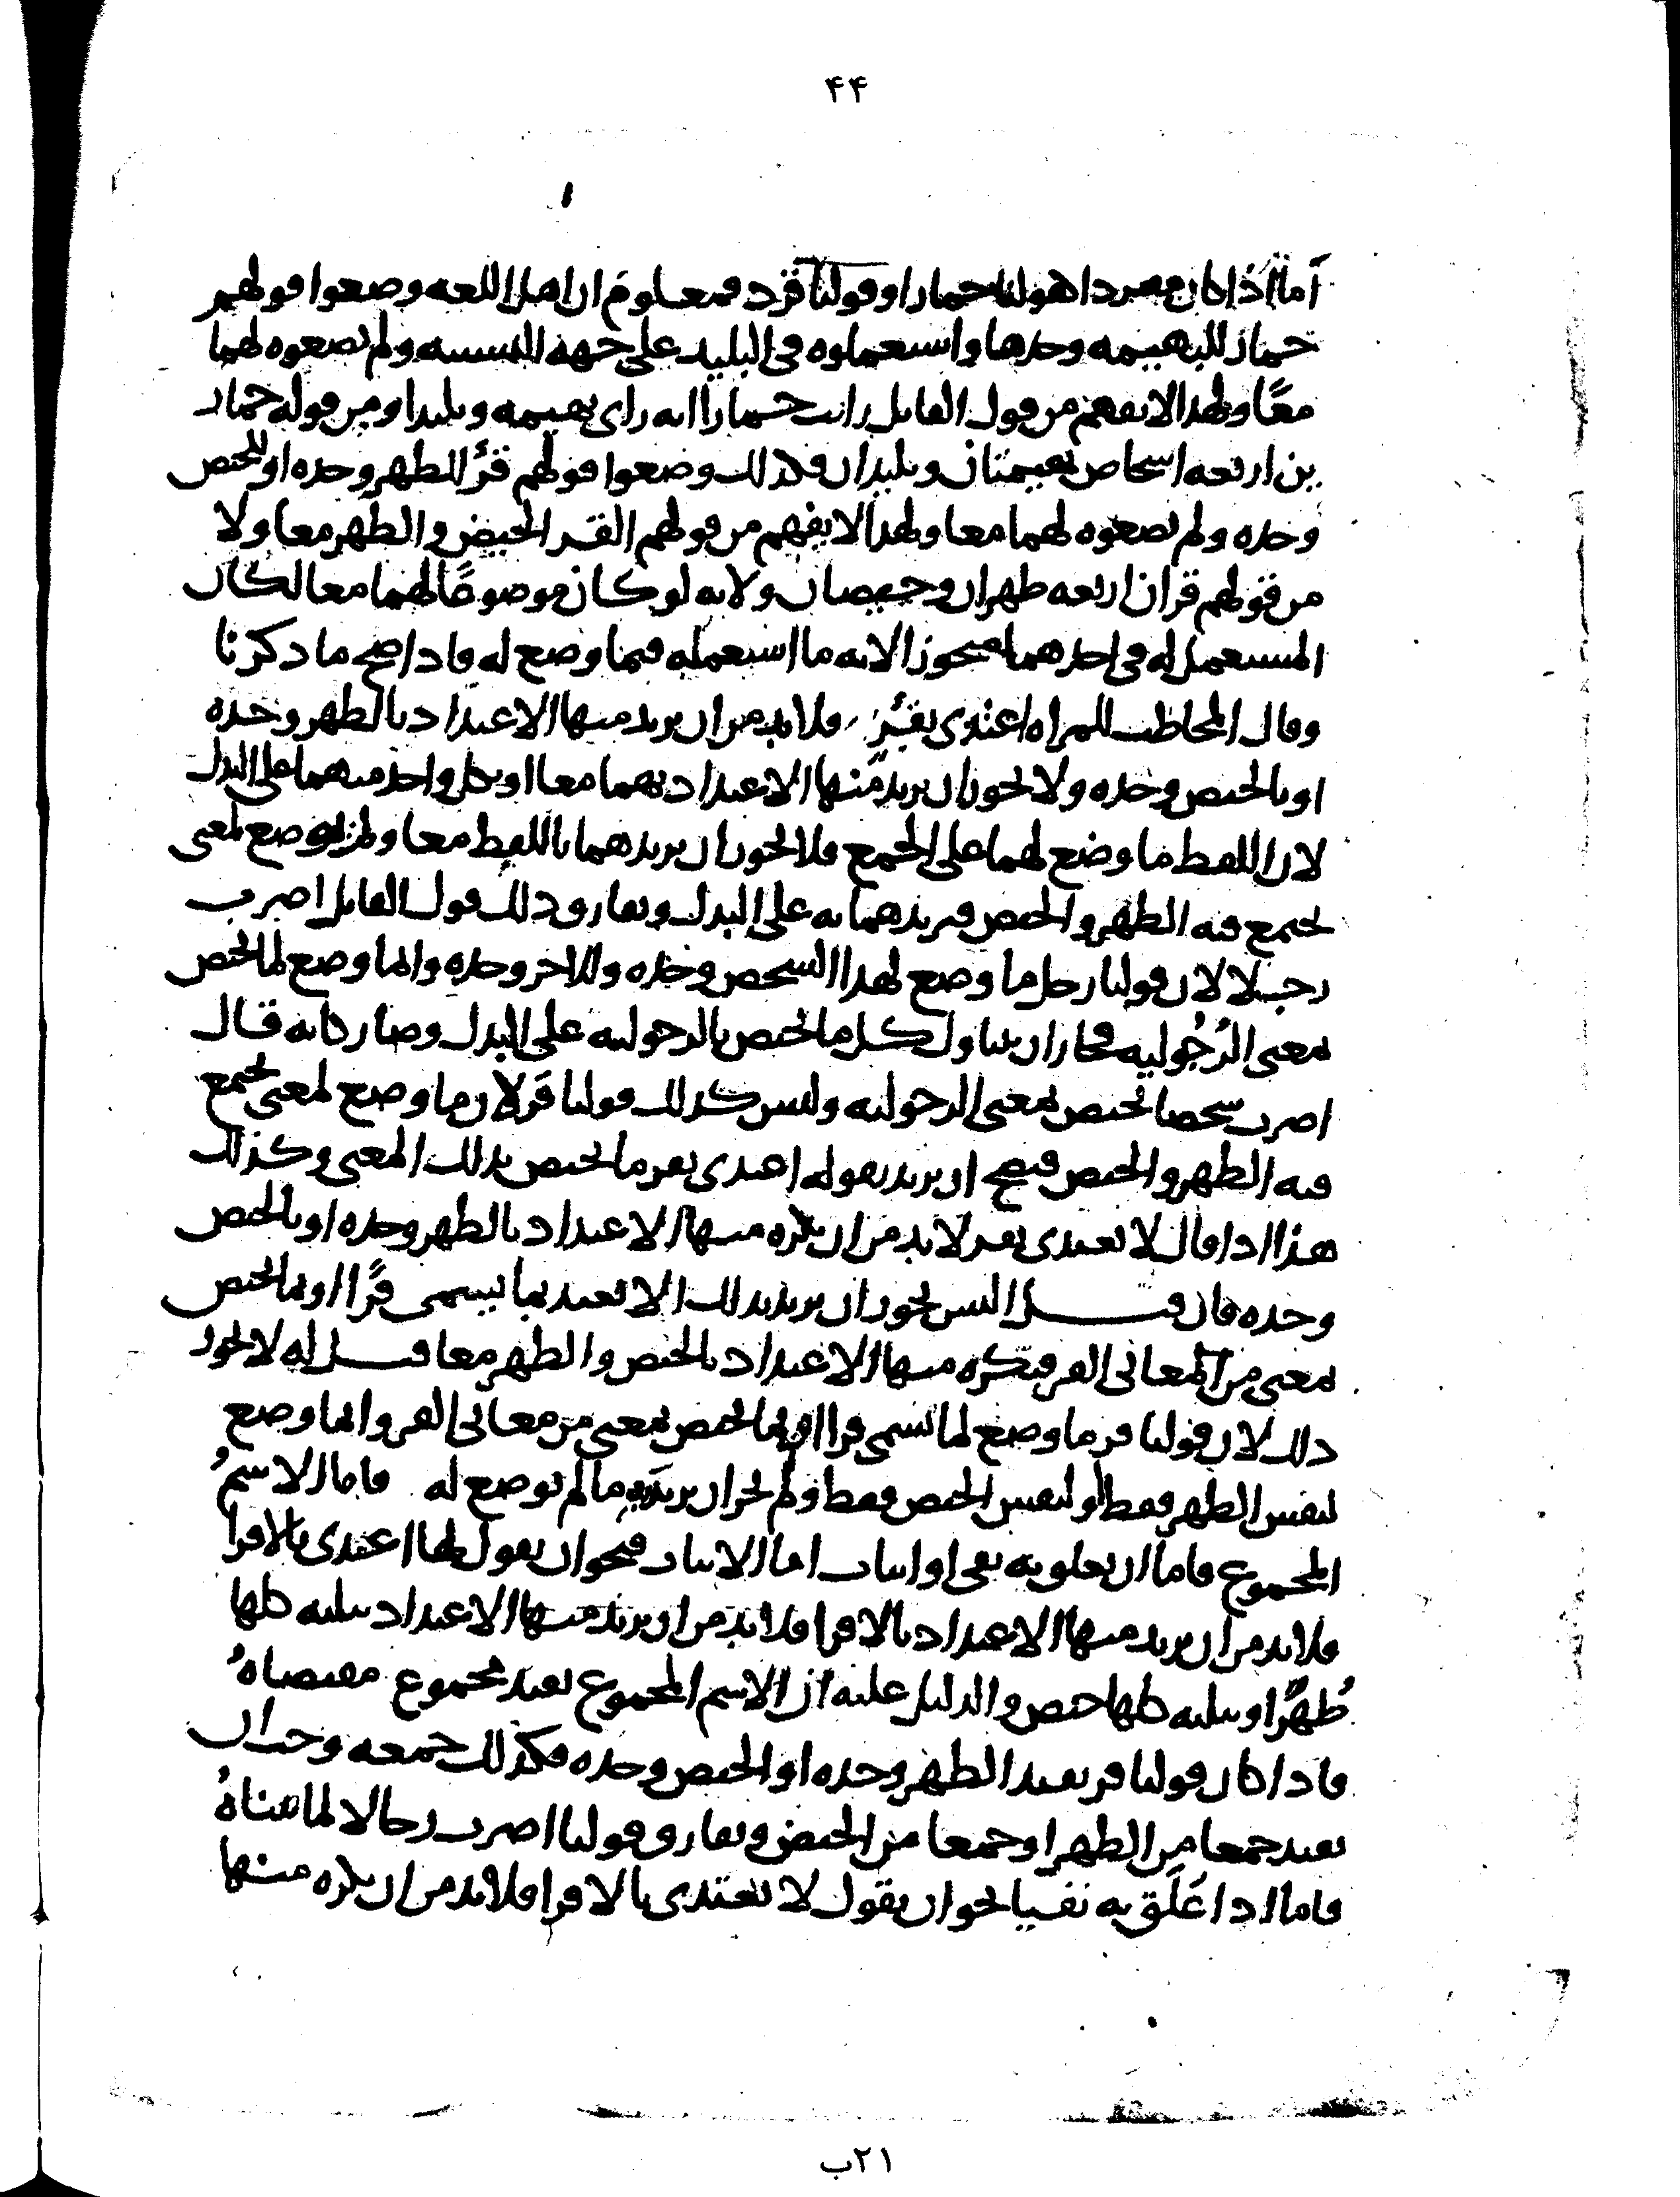 ۴۴
اما اذا كان مفردا كقولنا حمار او قولنا قرء فمعلوم ان اهل اللغه وضعوا قولهم
حمار للبهيمه وحدها واستعملوه فى البليد على جهة التشبيه ولم يضعوه لهما
معًا ولهذا لا يفهم من قول القايل رايت حمارا انه راى بهيمه وبليدا ومن قوله حمار
ين اربعه اشخاص بهيمتان وبليدان وكذلك وضعوا قولهم قرءٌ للطهر وحده او للحيض
وحده ولم يضعوه لهما معا ولهذا لا يفهم من قولهم القرء الحيض والطهر معا ولا
من قولهم قران اربعه طهران وحيضان ولانه لو كان موضوعًا لهما معا لكان
المستعمل له فى احدهما متجوزا لانه ما استعمله فيما وضع له فاذا صح ما ذكرنا
وقال المخاطب للمراه اعتدى بقرءٍ فلا بد من ان يريد منها الاعتداد بالطهر وحده
او بالحيض وحده ولا يجوز ان يريد منها الاعتداد بهما معا او بكل واحد منهما على البدل
لان اللفظ ما وضع لهما على الجمع فلا يجوز ان يريدهما باللفظ معا ولم يوضع لمعنى
يجتمع فيه الطهر والحيض فيريدهما به على البدل ويفارق ذلك قول القايل اضرب
رجلا لان قولنا رجل ما وضع لهذا الشخص وحده وللاخر وحده وانما وضع لما اختص
بمعنى الرُجُوليه فجاز ان يتناول كل ما اختص بالرجوليه على البدل وصار كانه قال
اضرب شخصا يختص بمعنى الرجوليه وليس كذلك قولنا قرء لانه ما وضع لمعنى يجتمع
فيه الطهر والحيض فيصح ان يريد بقوله اعتدى بقرء ما اختص بذلك المعنى وكذلك
هذا اذا قال لا تعتدى بقرء لا بد من ان يكره منها الاعتداد بالطهر وحده او بالحيض
وحده فان قيل اليس يجوز ان يريد بذلك الا تعتد بما يسمى قرًا او بما اختص
بمعنى من المعانى القرء فيكره منها الاعتداد بالحيض والطهر معا قيل له لا يجوز
ذلك لان قولنا قرء ما وضع لما يسمى قرا او بما اختص بمعنى من معانى القرء وانما وضع
لنفس الطهر فقط او لنفس الحيض فقط ولم يجز ان يريد به ما لم يوضع له فاما الاسمُ
المجموع فاما ان يعلق به نفى او اثبات اما الاثبات فنحو ان يقول لها اعتدى بالاقرا
فلا بد من ان يريد منها الاعتداد بالاقرا فلا بد من ان يريد منها الاعتداد بثلثه كلها
طُهرٌ او بثلثه كلها حيض والدليل عليه ان الاسم المجموع يفيد مجموع مقتضاهُ
فاذا كان قولنا قرء يفيد الطهر وحده او الحيض وحده فكذلك جمعه وجب ان
يفيد جمعا من الطهر او جمعا من الحيض ويفارق قولنا اضرب رجالا لما بيناهُ
فاما اذا عُلِّق به نفيا نحو ان يقول لا تعتدى بالاقرا فلا بد من ان يكره منها
٢١ب